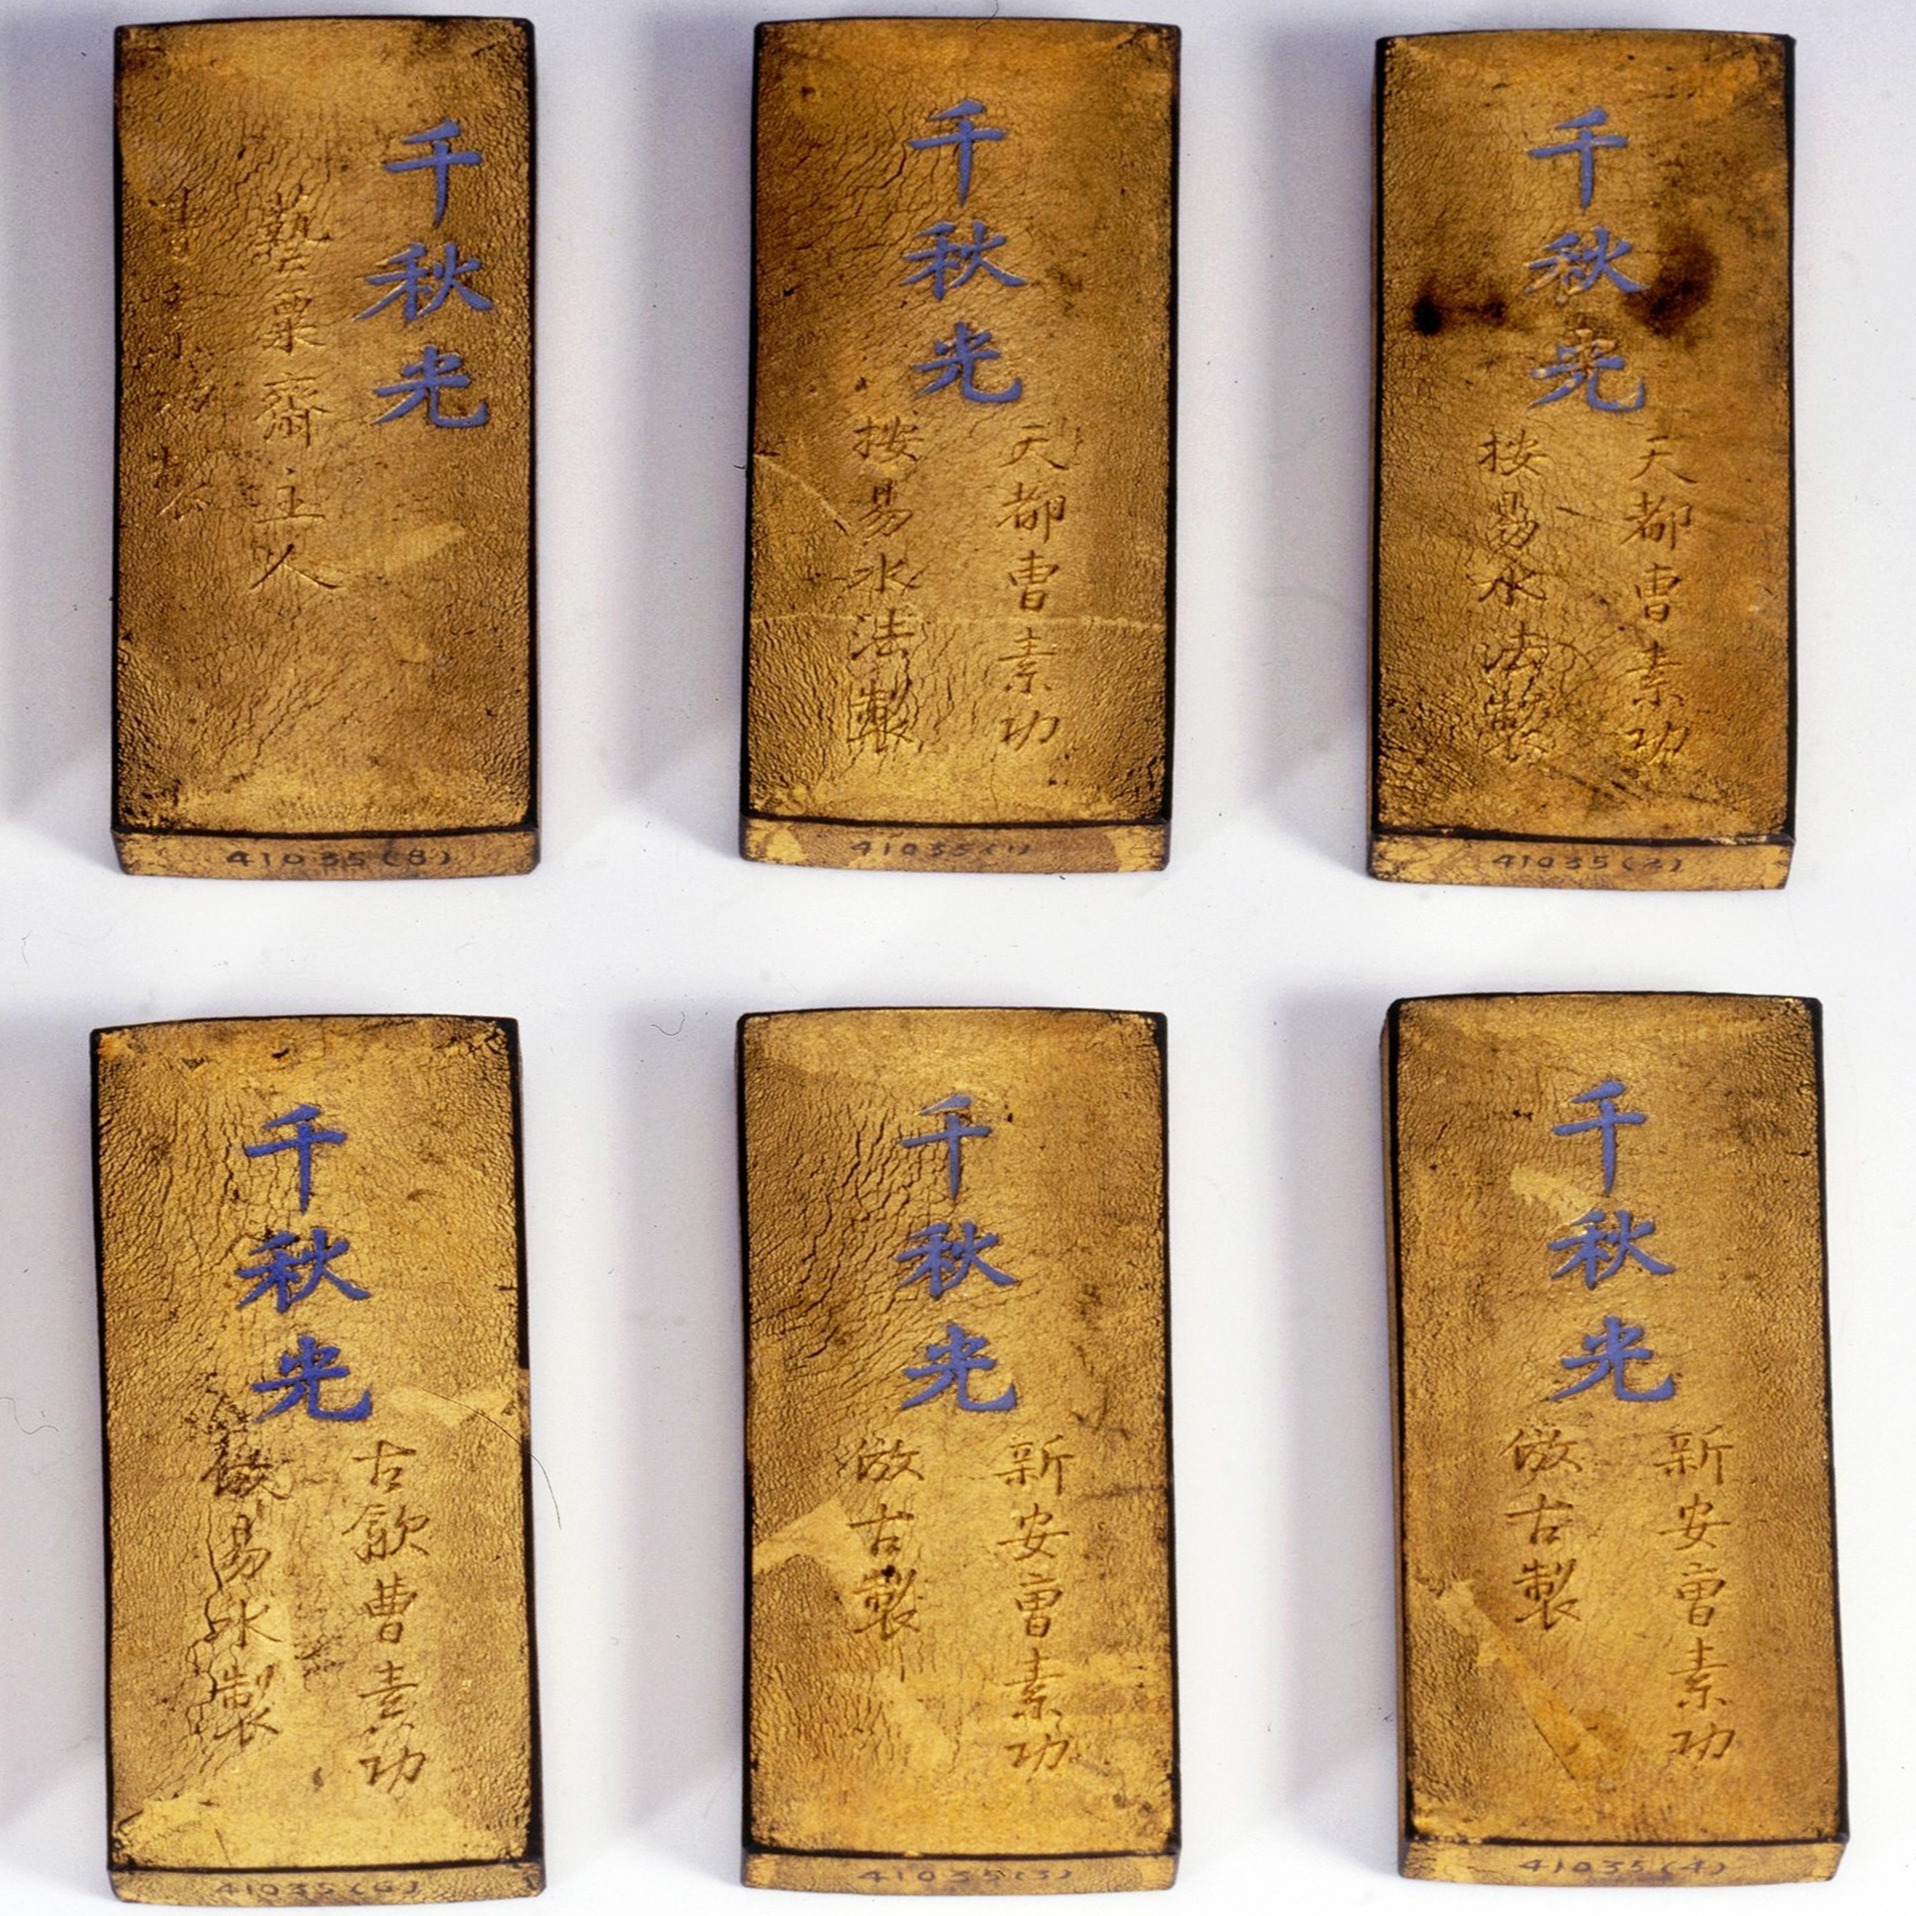 千秋光
藝粟齋主人
41035(8)
千秋光
天都曹素功
按易水法製
41035(1)
千秋光
天都曹素功
按易水法製
41035(2)
千秋光
古歙曹素功
倣易水製
41035(6)
千秋光
新安曹素功
倣古製
41035(3)
千秋光
新安曹素功
倣古製
41035(4)